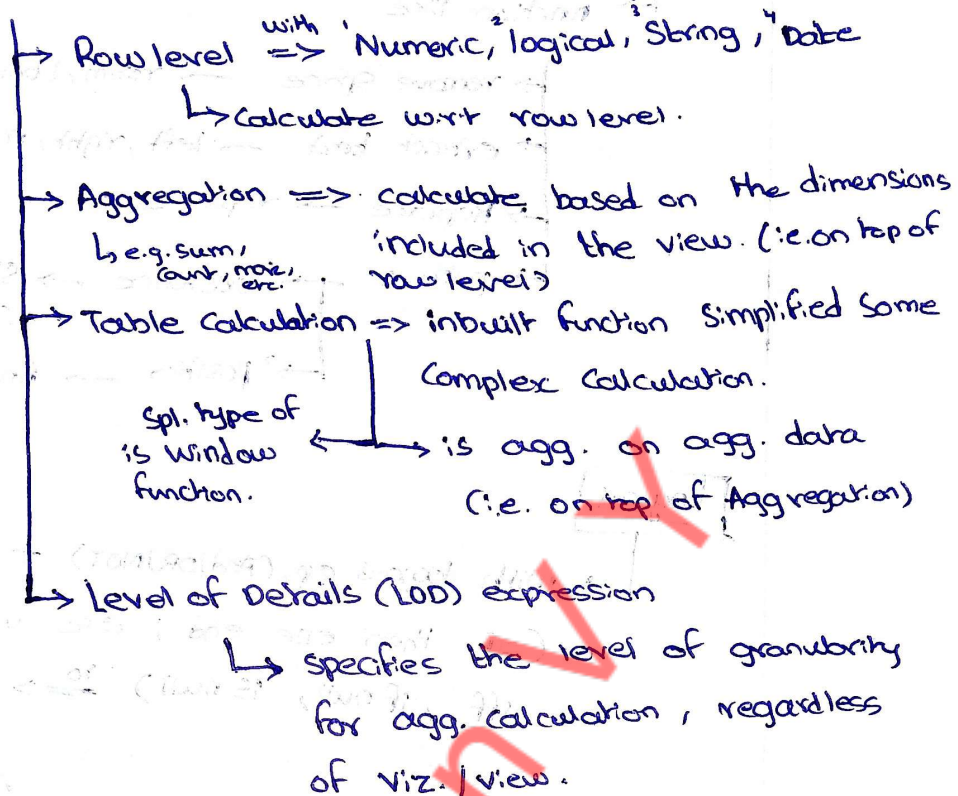 → Row level with => ¹Numeric, ²logical, ³String, ⁴Date
↳ Calculate w.r.t row level.
→ Aggregation => calculate based on the dimensions
↳ e.g. sum, included in the view. (i.e. on top of
count, max, etc. row level)
→ Table Calculation => inbuilt function simplified some
Complex Calculation.
Spl. type of
is window
function.
→ is agg. on agg. data
(i.e. on top of Aggregation)
→ Level of Details (LOD) expression
↳ specifies the level of granularity
for agg. calculation, regardless
of viz. / view.
n V Y